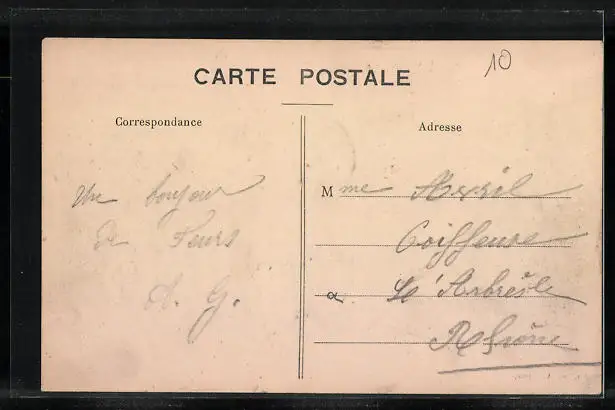 10
CARTE POSTALE
Correspondance
Adresse
Un bonjour
de Feurs
A. G.
Mme
Coiffeuse
à L'Arbresle
Rhône